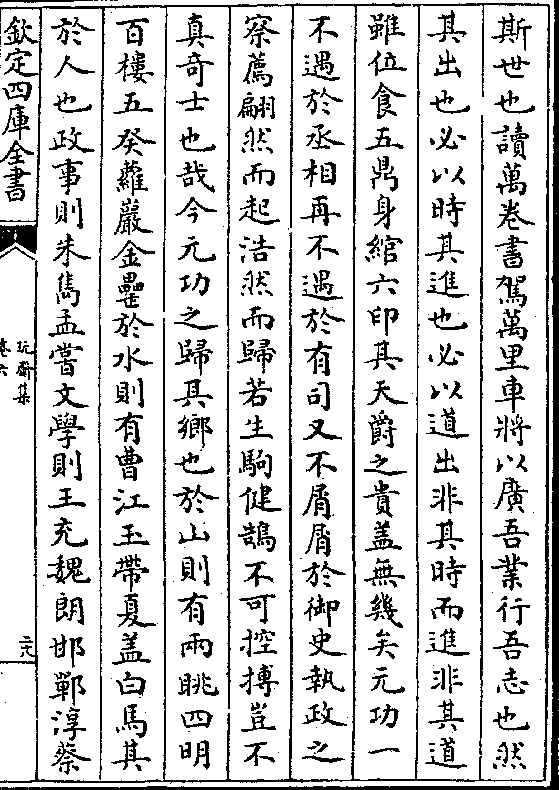 斯世也讀萬卷書駕萬里車將以廣吾業行吾志也然
其出也必以時其進也必以道出非其時而進非其道
雖位食五鼎身綰六印其天爵之貴蓋無幾矣元功一
不遇於丞相再不遇於有司又不屑屑於御史執政之
察薦翩然而起浩然而歸若生駒健鶻不可控摶豈不
真奇士也哉今元功之歸其鄉也於山則有兩眺四明
百樓五癸蘿巖金罍於水則有曹江玉帶夏蓋白馬其
於人也政事則朱雋孟嘗文學則王充魏朗邯鄲淳蔡
欽定四庫全書
玩齋集
卷六
二六